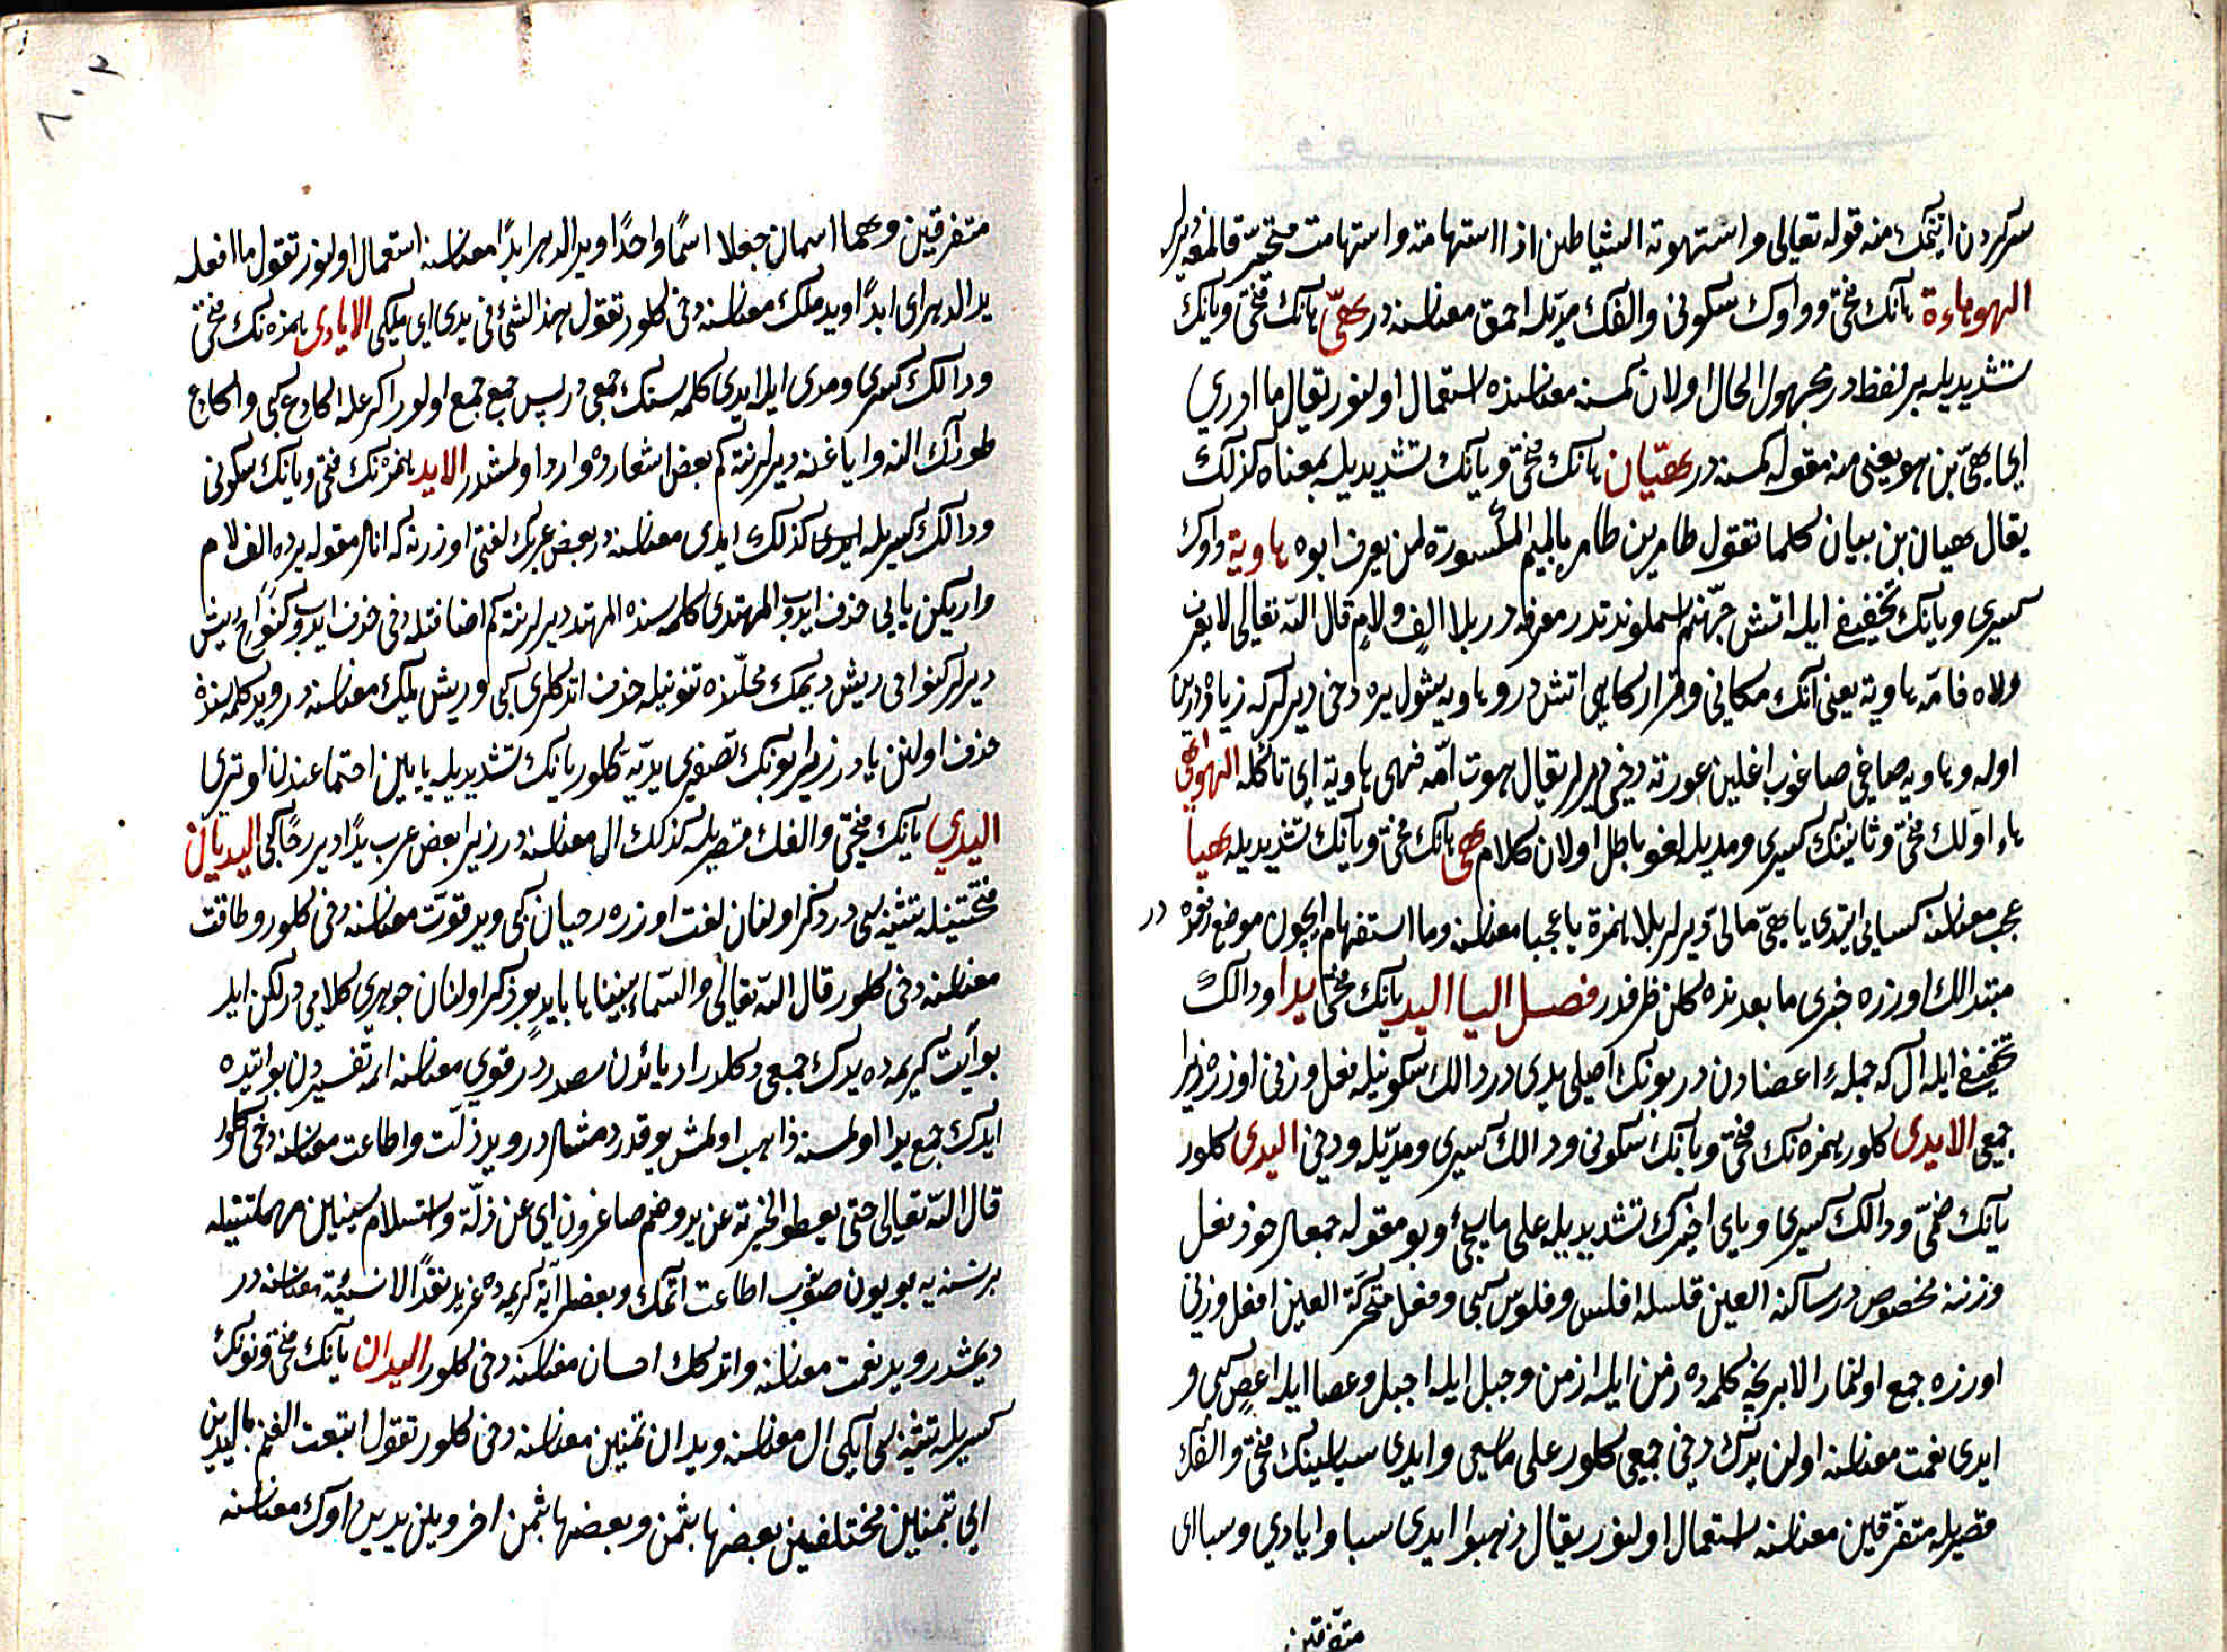 سركردن ايتمك منه قوله تعالى واستهوته الشياطين اذا استهامته واستهامت متحير قالمغه ديرلر
الهوهاءة هانك فتحى وواوك سكونى والفك مديله احمق معناسنه در هىّ هانك فتحى ويانك
تشديديله بر لفظدر مجهول الحال اولان كمسنه معناسنده استعمال اولنور يقال ما ادري
اي هىّ بن هو يعنى نه مقوله كمسنه در هيّان هانك فتحى ويانك تشديديله بمعناه كذلك
يقال هيان بن بيان كلما تقول طامر بن طامر بالميم المكسورة لمن يعرف ابوه هاوية واوك
كسرى ويانك تخفيفى ايله اتش جهنم اسملرندندر معرفه در بلا الف ولام قال الله تعالى
فامه هاوية يعنى انك مكانى وقراركاهى اتشدر وهاويه شول يره دخى ديرلر كه زياده درين
اوله وهاويه صاغى صاغوب اغلين عورته دخى ديرلر يقال هوت امّه فهى هاوية اي ثاكله الهواهى
هاء اولك فتحى وثانينك كسرى ومديله لغو باطل اولان كلام هى هانك فتحى ويانك تشديديله هيا
عجب معناسنه كسائى ايتدى يا هىّ مالى ديرلر بلا همزة يا عجبا معناسنه وما استفهام ايچون موضع رفعده در
مبتدالك اوزره خبرى ما بعدنده كلن ظرفدر فصل اليا اليد يانك فتحى يدا ودالك
تخفيفى ايله ال كه جمله اعضادن در بونك اصلى يدى در دالك سكونيله فعل وزنى اوزره زيرا
جمعى الايدى كلور همزه نك فتحى ويانك سكونى ودالك كسرى ومديله ودخى اليدى كلور
يانك ضمى ودالك كسرى وياى اخيرك تشديديله على ما يجئ وبو مقوله جمعلر خود فعل
وزننه مخصوصدر ساكنه العين فلسله افلس وفلوس كبى وفعل متحركة العين افعل وزنى
اوزره جمع اولنماز الا بر نچه كلمه ده زمن ايله ازمن وجبل ايله اجبل وعصا ايله اعص كبى و
ايدى نعمت معناسنه اولن يدك دخى جمعى كلور على ما سيجى وايدى سبا سينك فتحى والفك
قصريله متفرقين معناسنه استعمال اولنور يقال ذهبوا ايدى سبا وايادي سبا اى
متفرقين
متفرقين وهما اسمان جعلا اسمًا واحدًا ويد الدهر ابدًا معناسنه استعمال اولنور تقول ما افعله
يد الدهر اى ابدًا ويد ملك معناسنه دخى كلور تقول هذا الشئ فى يدى اي ملكى الايادى همزه نك فتحى
ودالك كسرى ومدى ايله ايدى كلمه سنك جمعى در پس جمع جمع اولور اكرع ايله اكارع كبى
بعض اشعارده وارد اولمشدر الايد همزه نك فتحى ويانك سكونى
ودالك كسريله ايدى كذلك ايدى معناسنه در بعض عربك لغتى اوزرنه كه انلر مقوله يرده الف لام
واريكن يايى حذف ايدوب المهتدى كلمه سنده المهتد ديرلر نته كم اضافتله دخى حذف ايدوب كنواح ريش
ديرلر كنواحى ريش ديمك محلنده تنوينله حذف اتدكلرى كبى وريش يلك معناسنه در ويد كلمه سنده
حذف اولنن يا در زيرا بونك تصغيرى يديّة كلور يانك تشديديله يايين اجتماعندن اوترى
اليدي يانك فتحى والفك قصريله كذلك ال معناسنه در زيرا بعض عرب يدًا دير رحًا كبى اليديان
فتحتينله تثنيه سى در ذكر اولنان لغت اوزره رحيان كبى ويد قوّت معناسنه دخى كلور وطاقت
معناسنه دخى كلور قال الله تعالى والسماء بنيناها بايد بو ذكر اولنان جوهرى كلامى در لكن ايد
بو آيت كريمه ده يدك جمعى دكلدر اد يائدن مصدردر قوى معناسنه ائمه تفسيردن بو آيتده
ايدك جمع يد اولمسنه ذاهب اولمش يوقدر ويد ذلّت واطاعت معناسنه دخى كلور
قال الله تعالى حتى يعطوا الجزية عن يد وهم صاغرون اي عن ذلّة واستسلام
برنسنه يه بويون صنوب اطاعت اتمك وبعضلر آية كريمه ده عن يد نقدًا لا نسيئة معناسنه در
ديمشدر ويد نعمت معناسنه واتدكك احسان معناسنه دخى كلور اليدان يانك فتحى ونونك
كسريله تثنيه سى ايكى ال معناسنه ويدان ثمنين معناسنه دخى كلور تقول ابتعت الغنم باليدين
اي بثمنين مختلفين بعضها بثمن وبعضها بثمن اخر وبين يديه اوك معناسنه